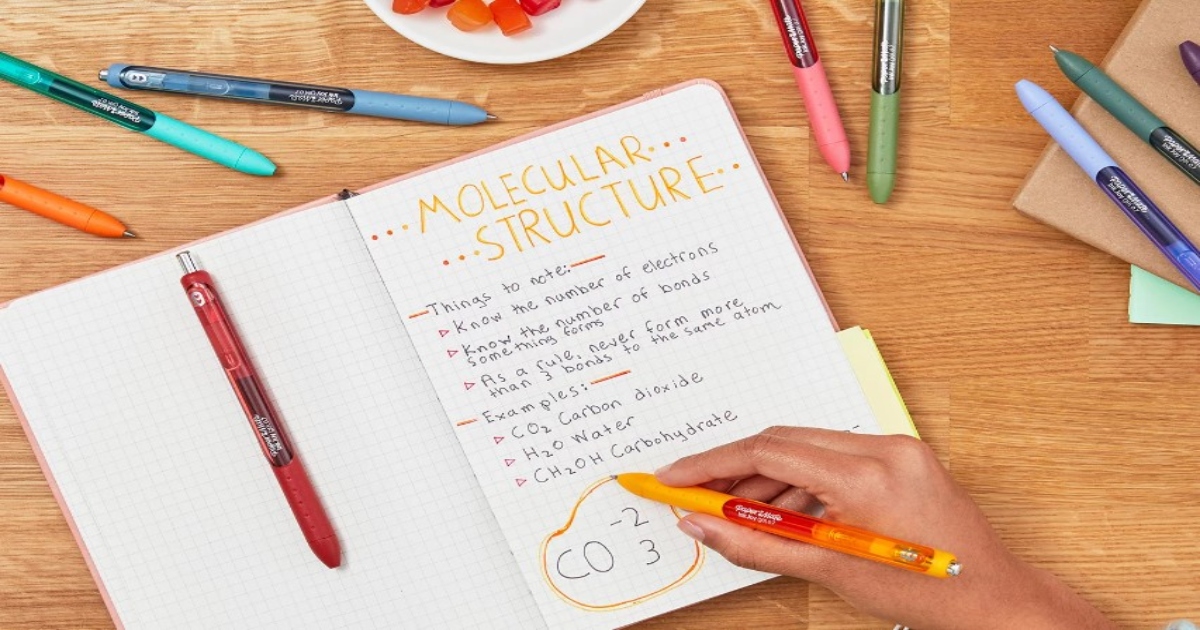 ...MOLECULAR...
...STRUCTURE...
Things to note:
Know the number of electrons
Know the number of bonds
something forms
As a rule, never form more
than 3 bonds to the same atom
Examples:
CO₂ Carbon dioxide
H₂O Water
CH₂OH Carbohydrate
-2
CO 3
Paper Mate
InkJoy gel 0.7